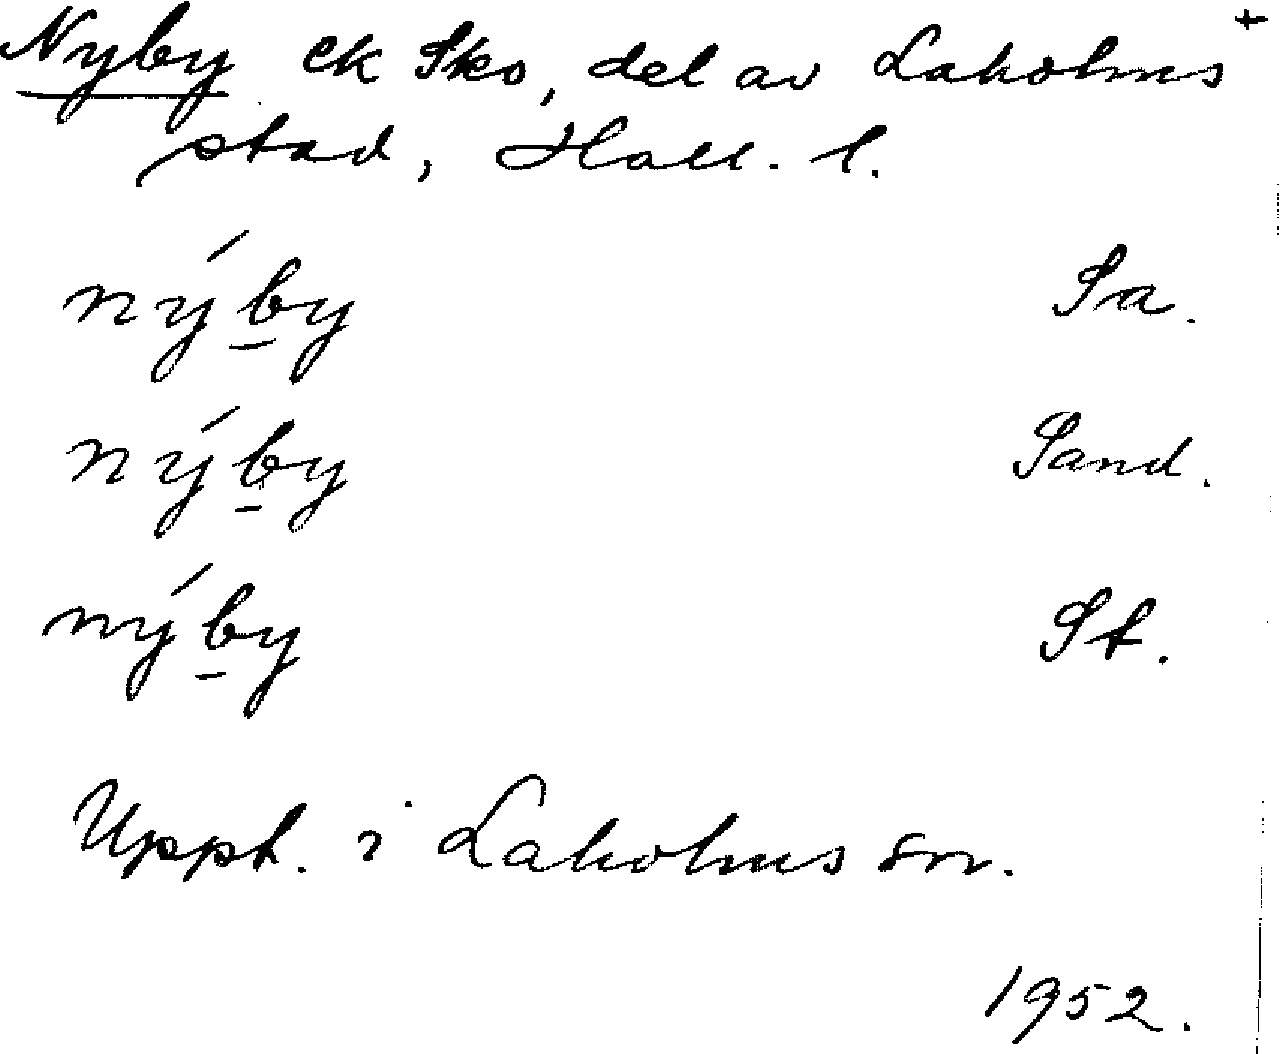 Nyby ek Sko, del av Laholms +
stad, Hall. l.
ný́by Sa.
ný́by Sand.
ný́by St.
Uppt. i Laholms sn.
1952.